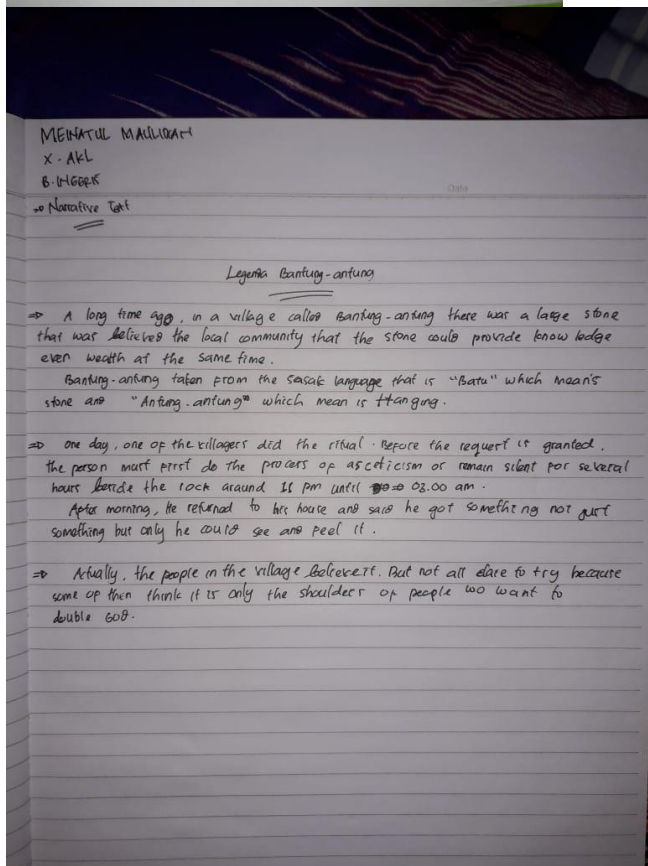 MEINATUL MAULIDAH
X - AKL
B. INGGRIS
Date
⇒ Narrative Text
Legenda Bantung-antung
⇒ A long time ago, in a village called Bantung-antung there was a large stone
that was believed the local community that the stone could provide know ledge
even wealth at the same time.
Bantung-antung taken from the sasak language that is "Batu" which mean's
stone and "Antung-antung" which mean is Hanging.
⇒ One day, one of the villagers did the ritual. Before the request is granted,
the person must first do the process of asceticism or remain silent for several
hours beside the rock around 11 pm until 03.00 am.
After morning, He returned to his house and said he got something not just
something but only he could see and feel it.
⇒ Actually, the people in the village believe it. But not all dare to try because
some of then think it is only the shoulders of people wo want to
double God.